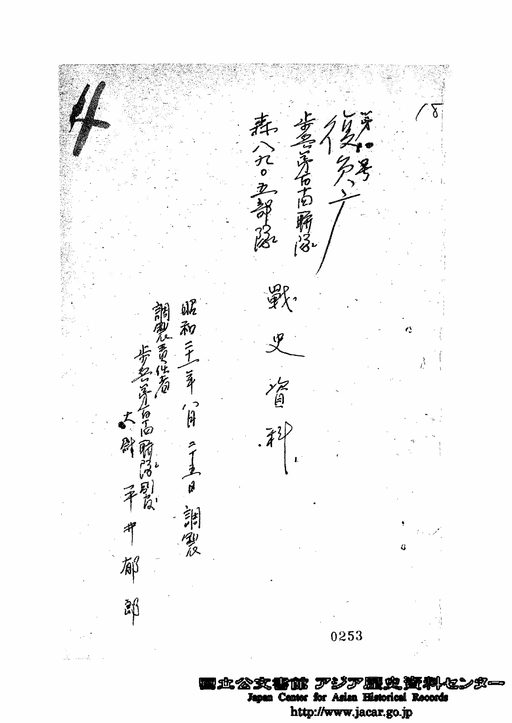 18
4
第 号
復員
歩兵第百 聯隊
森八九〇五部隊
戰史資料
昭和二十一年八月二十五日調製
調製責任者
歩兵第百 聯隊
大尉 平井郁郎
0253
国立公文書館 アジア歴史資料センター
Japan Center for Asian Historical Records
http://www.jacar.go.jp